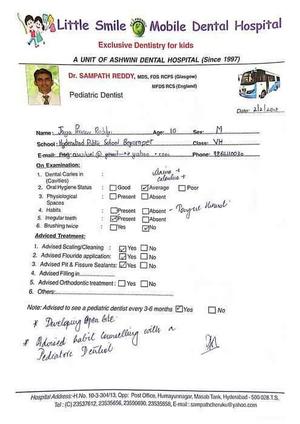 Little Smile Mobile Dental Hospital
Exclusive Dentistry for kids
A UNIT OF ASHWINI DENTAL HOSPITAL (Since 1997)
Dr. SAMPATH REDDY, MDS, FDS RCPS (Glasgow)
MFDS RCS (England)
Pediatric Dentist
Date: 2/2/
Name: Reddy Age: 10 Sex: M
School: Hyderabad Public School Begumpet Class: VII
E-mail: Phone:
On Examination:
1. Dental Caries in (Cavities)
2. Oral Hygiene Status : Good Average Poor
3. Physiological Spaces : Present Absent
4. Habits : Present Absent - Tongue thrust
5. Irregular teeth : Present Absent
6. Brushing twice : Yes No
Advised Treatment:
1. Advised Scaling/Cleaning : Yes No
2. Advised Flouride application: Yes No
3. Advised Pit & Fissure Sealants: Yes No
4. Advised Filling in
5. Advised Orthodontic treatment : Yes No
6. Others:
Note: Advised to see a pediatric dentist every 3-6 months Yes No
* Developing Open bite
* Advised habit counselling with a
Pediatric Dentist
Hospital Address:-H.No. 10-3-304/13, Opp: Post Office, Humayunnagar, Masab Tank, Hyderabad - 500 028.T.S.
Tel: (C) 23537612, 23535656, 23590690, 23535858, E-mail : sampathcheruku@yahoo.com